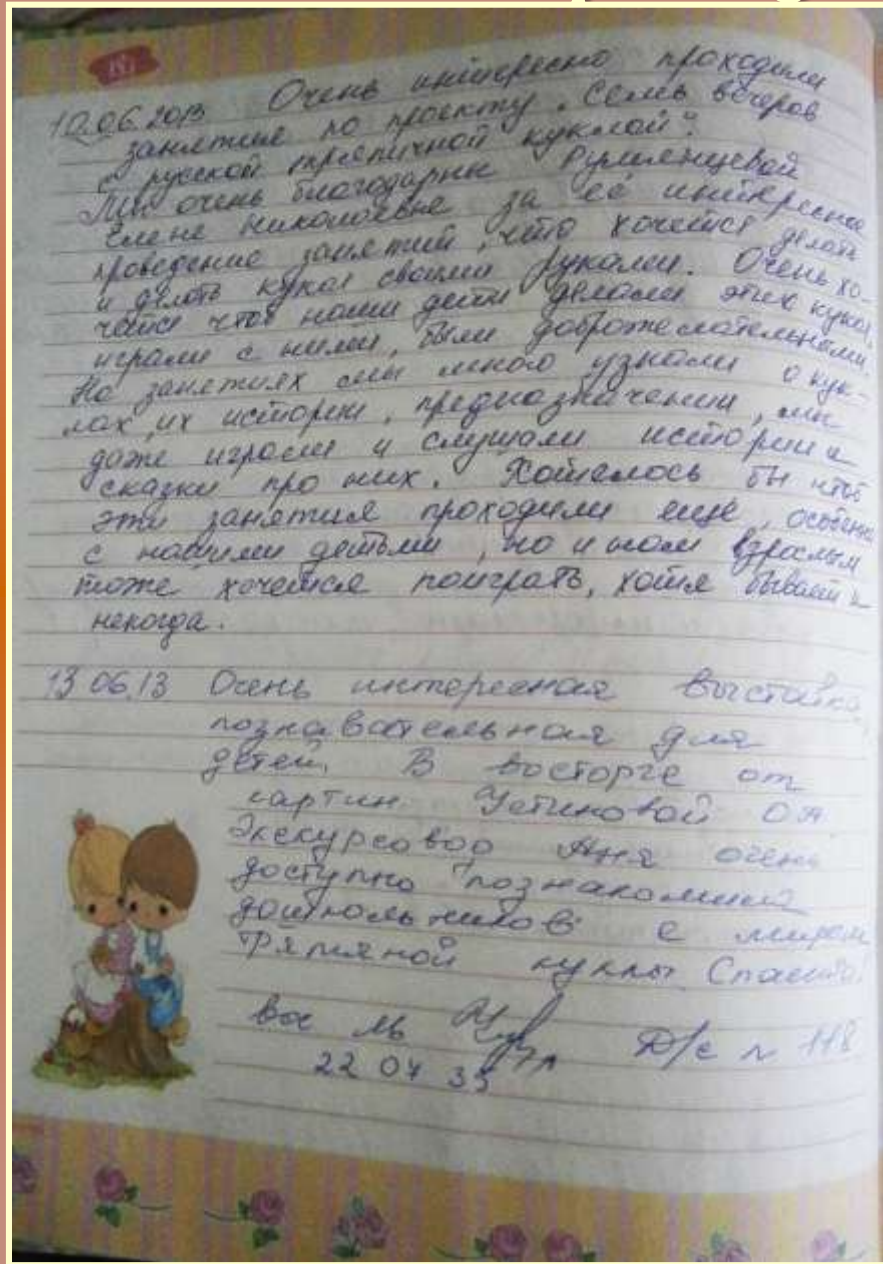 10.06.2013 Очень интересно проходили
занятия по проекту. Семь вечеров
с русской тряпичной куклой".
Мы очень благодарны Румянцевой
Елене Николаевне за её интересное
проведение занятий, что хочется делать
и делать кукол своими руками. Очень хо-
чется чтоб наши дети делали этих кукол,
играли с ними, были доброжелательными.
На занятиях мы много узнали о кук-
лах, их истории, предназначении, мы
даже играли и слушали истории и
сказки про них. Хотелось бы чтоб
эти занятия проходили ещё, особенно
с нашими детьми, но и нам взрослым
тоже хочется поиграть, хотя бывает и
некогда.
13 06.13 Очень интересная выставка,
познавательная для
детей. В восторге от
картин Устиновой О.А.
Экскурсовод Аня очень
доступно познакомила
дошкольников с миром
тряпяной куклы. Спасибо!
вос ль Д/с № 118
22 04 35